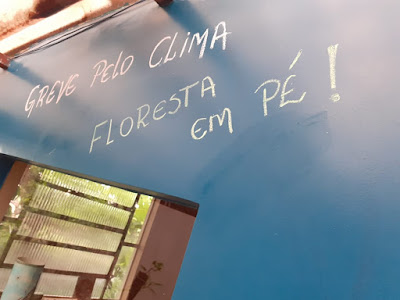 GREVE PELO CLIMA
FLORESTA
EM PÉ!